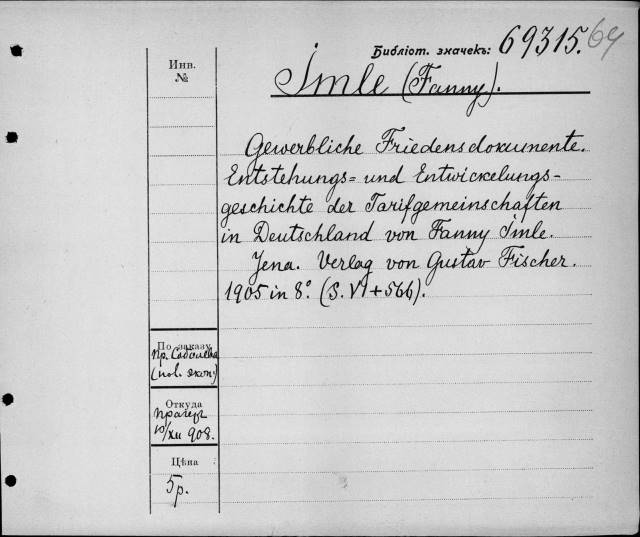 Библіот. значекъ: 69315. 64
Инв.
№
Imle (Fanny).
Gewerbliche Friedensdokumente.
Entstehungs= und Entwickelungs-
geschichte der Tarifgemeinschaften
in Deutschland von Fanny Imle.
Jena. Verlag von Gustav Fischer.
1905 in 8° (S. VI + 566).
По заказу
пр. Соболева
(пол. экон.)
Откуда
Прагеръ
10/XII 908.
Цѣна
5 р.